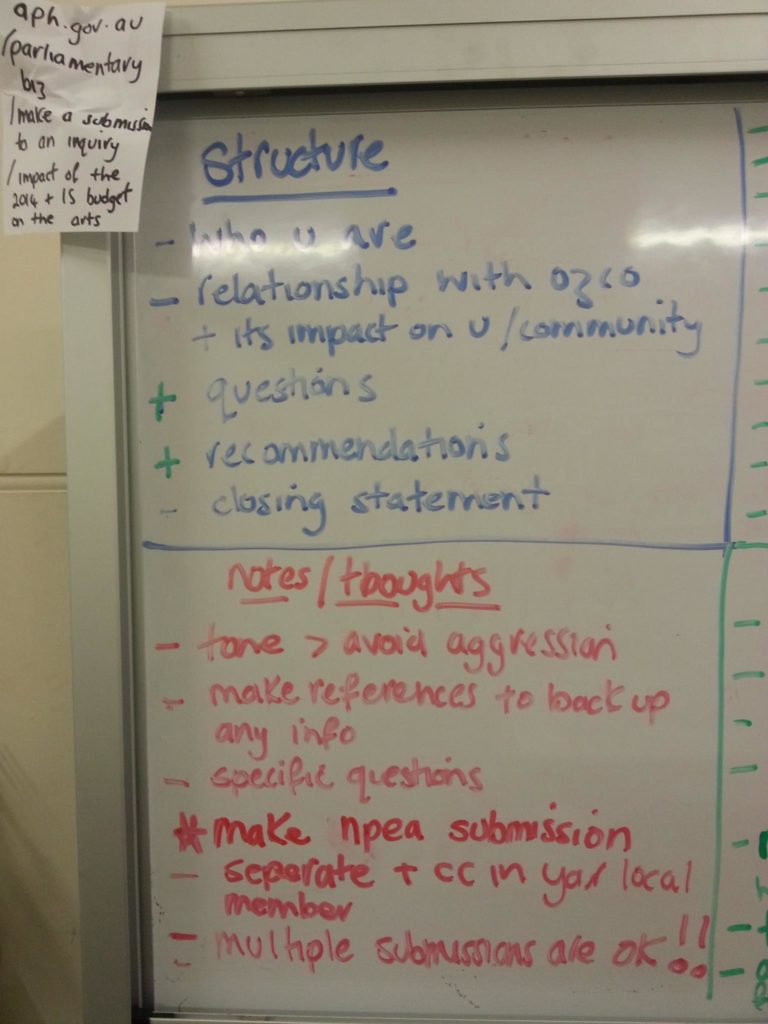 aph.gov.au
/parliamentary
biz
/make a submission
to an inquiry
/impact of the
2014 + 15 budget
on the arts
Structure
- who u are
- relationship with ozco
+ its impact on u/community
+ questions
+ recommendations
- closing statement
notes/thoughts
- tone > avoid aggression
- make references to back up
any info
- specific questions
* make npea submission
- seperate + cc in yar local
member
- multiple submissions are ok!!